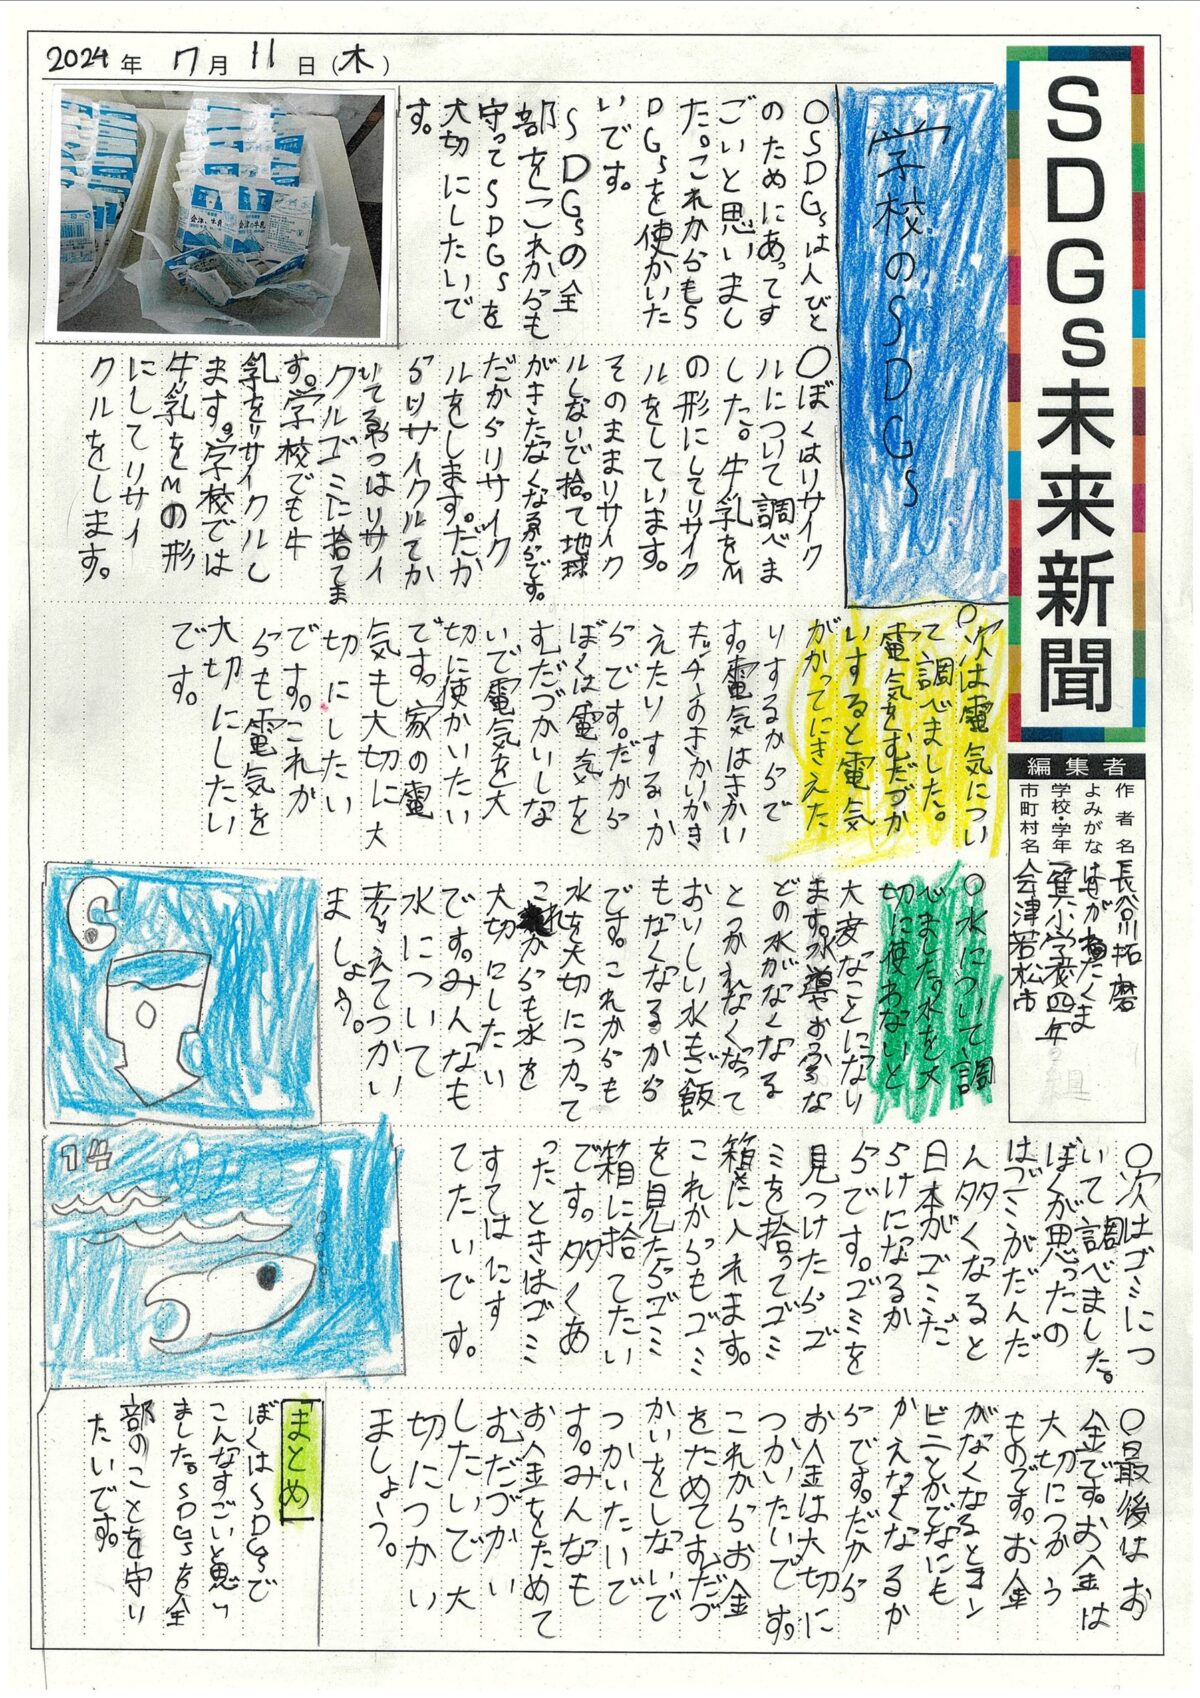 2024年 7月 11日(木)
SDGs未来新聞
編集者
作者名 長谷川拓磨
よみがな はせがわたくま
学校・学年 一箕小学校四年
市町村名 会津若松市
学校のSDGs
○SDGsは人びと
のためにあってす
ごいと思いまし
た。これからもS
DGsを使かいた
いです。
SDGsの全
部をこれからも
守ってSDGsを
大切にしたいで
す。
○ぼくはリサイク
ルについて調べま
した。牛乳をM
の形にしてリサイク
ルをしています。
そのままリサイク
ルしないで捨って地球
がきたなくなるからです。
だからリサイク
ルをします。だか
らリサイクルてか
いてるやつはリサイ
クルゴミに捨てま
す。学校でも牛
乳をリサイクルし
ます。学校では
牛乳をMの形
にしてリサイ
クルをします。
○次は電気につい
て調べました。
電気をむだづか
いすると電気
がかってにきえた
りするからで
す。電気はきかい
たっチーおきかいがき
えたりするか
らです。だから
ぼくは電気を
むだづかいしな
いで電気を大
切に使かいたい
です。家の電
気も大切に大
切にしたい
です。これか
らも電気を
大切にしたい
です。
○水について調
べました。水を大
切に使わないと
大変なことになり
ます。水道やおふろな
どの水がなくなる
とつかれなくなって
おいしい水もご飯
もなくなるから
です。これからも
水を大切につかって
これからも水を
大切にしたい
です。みんなも
水について
考えてつかい
ましょう。
14
○次はゴミにつ
いて調べました。
ぼくが思ったの
はゴミがだんだ
ん多くなると
日本がゴミだ
らけになるか
らです。ゴミを
見つけたらゴ
ミを拾ってゴミ
箱に入れます。
これからもゴミ
を見たらゴミ
箱に捨てたい
です。多くあ
ったときはゴミ
すてはにす
てたいです。
○最後はお
金です。お金は
大切につかう
ものです。お金
がなくなるときコン
ビニとかでなにも
かえなくなるか
らです。だから
お金は大切に
つかいたいです。
これからお金
をためてむだづ
かいをしないで
つかいたいで
す。みんなも
お金をためて
むだづかい
したいで大
切につかい
ましょう。
「まとめ」
ぼくはSDGsで
こんなすごいと思い
ました。SDGsを全
部のことを守り
たいです。